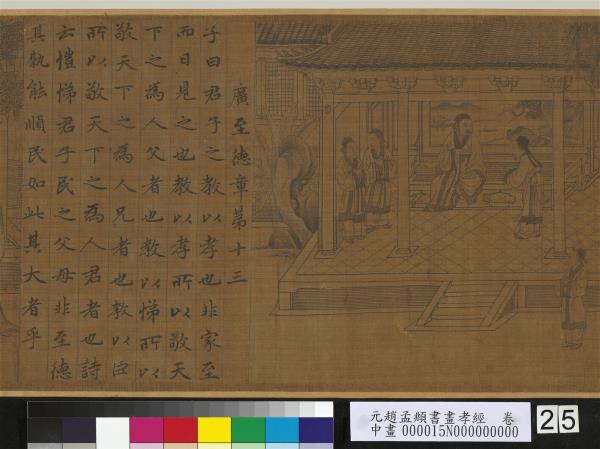 廣至德章第十三
子曰君子之教以孝也非家至
而日見之也教以孝所以敬天
下之為人父者也教以悌所以
敬天下之為人兄者也教以臣
所以敬天下之為人君者也詩
云愷悌君子民之父母非至德
其孰能順民如此其大者乎
元趙孟頫書畫孝經 卷
中畫000015N000000000
25